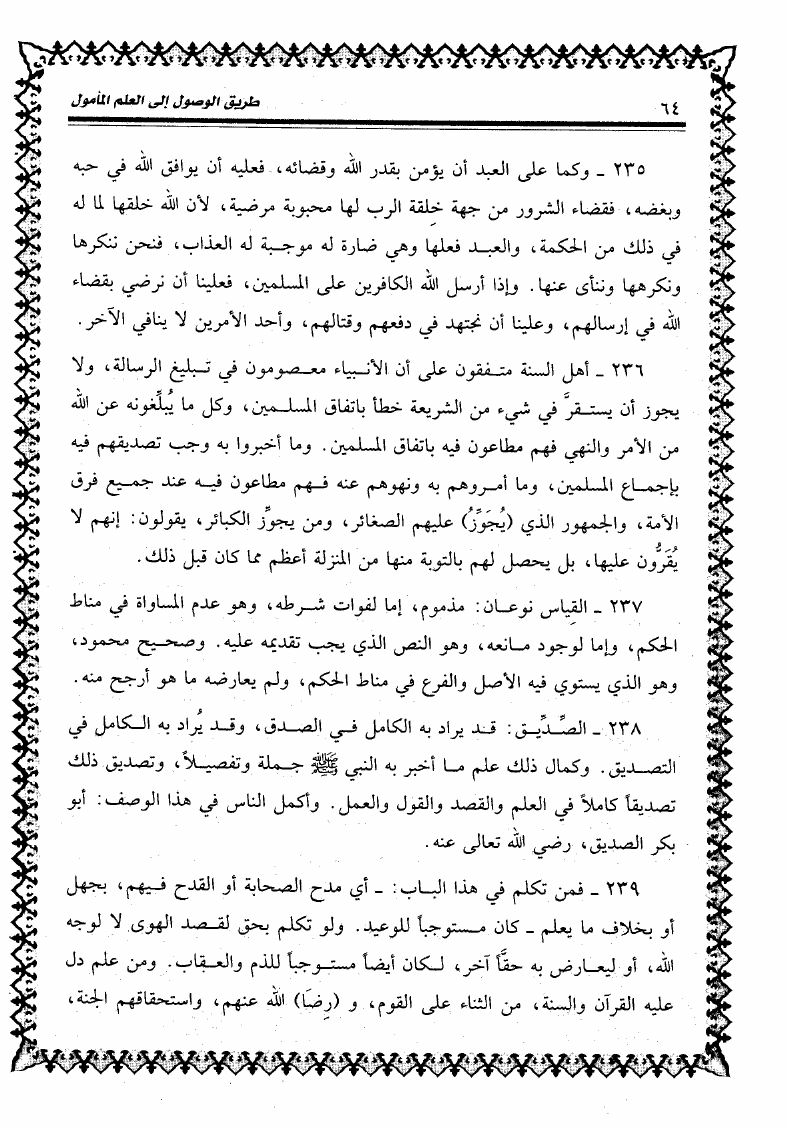 ٦٤
طريق الوصول إلى العلم المأمول
٢٣٥ ـ وكما على العبد أن يؤمن بقدر الله وقضائه، فعليه أن يوافق الله في حبه
وبغضه، فقضاء الشرور من جهة خِلقة الرب لها محبوبة مرضية، لأن الله خلقها لما له
في ذلك من الحكمة، والعبـد فعلها وهي ضارة له موجـبة له العذاب، فنحن ننكرها
ونكرهها وننأى عنها. وإذا أرسل الله الكافرين على المسلمين، فعلينا أن نرضي بقضاء
الله في إرسالهم، وعلينا أن نجتهد في دفعهم وقتالهم، وأحد الأمرين لا ينافي الآخر.
٢٣٦ ـ أهل السنة متـفقون على أن الأنـبياء معـصومون في تـبليغ الرسالة، ولا
يجوز أن يستـقرَّ في شيء من الشريعة خطأ باتفاق المسلـمين، وكل ما يُبلِّغونه عن الله
من الأمر والنهي فهم مطاعون فيه باتفاق المسلمين. وما أخبروا به وجب تصديقهم فيه
بإجمـاع المسلمين، وما أمـروهم به ونهوهم عنه فـهم مطاعون فيـه عند جمـيع فرق
الأمة، والجمهور الذي (يُجَوِّزُ) عليهم الصغائر، ومن يجوِّز الكبائر، يقولون: إنهم لا
يُقَرُّون عليها، بل يحصل لهم بالتوبة منها من المنزلة أعظم مما كان قبل ذلك.
٢٣٧ ـ القِياس نوعـان: مذموم، إما لفوات شـرطه، وهو عدم المساواة في مناط
الحكم، وإما لوجود مـانعه، وهو النص الذي يجب تقديمه عليه. وصحـيح محمود،
وهو الذي يستوي فيه الأصل والفرع في مناط الحكم، ولم يعارضه ما هو أرجح منه.
٢٣٨ ـ الصِّدِّيـق: قـد يراد به الكامل فـي الصـدق، وقـد يُراد به الـكامل في
التصـديق. وكمال ذلك علم مـا أخبر به النبي ﷺ جـملة وتفصيـلاً، وتصديق ذلك
تصديقاً كاملاً في العلم والقصد والقول والعمل. وأكمل الناس في هذا الوصف: أبو
بكر الصديق، رضي الله تعالى عنه.
٢٣٩ ـ فمن تكلم في هذا البـاب: ـ أي مدح الصحابة أو القدح فـيهم، بجهل
أو بخلاف ما يعلم ـ كان مـستوجباً للوعيد. ولو تكلم بحق لقـصد الهوى لا لوجه
الله، أو ليعـارض به حقّاً آخر، لـكان أيضاً مستـوجباً للذم والعـقاب. ومن علم دل
عليه القرآن والسنة، من الثناء على القوم، و (رِضَا) الله عنهم، واستحقاقهم الجنة،